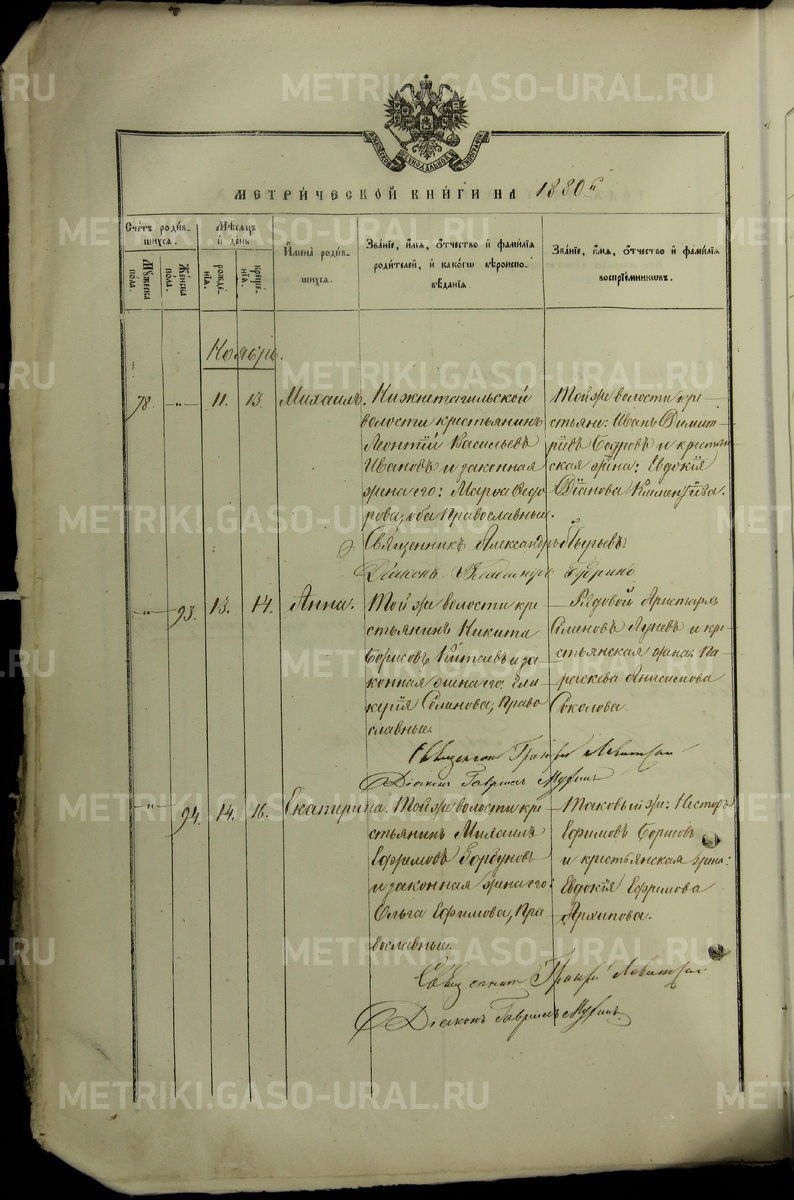 METRIKI.GASO-URAL.RU
МЕТРИ́ЧЕСКОЙ КНИ́ГИ НА 1880 г.
Сче́тъ роди́в-
шихся.
Мѣ́сяцъ
и́ де́нь
И҆мена̀ роди́в-
шихся.
Зва́нїе, и҆́мя, ѻ҆́тчество и҆ фами́лїя
роди́телей, и҆ како́гѡ вѣ́роиспо-
вѣ́данїя.
Зва́нїе, и҆́мя, ѻ҆́тчество и҆ фами́лїя
воспрїе́мникѡвъ.
Мꙋ́жеска
по́ла.
Же́нска
по́ла.
рожде́-
нїя.
креще́-
нїя.
Ноябрь.
78. -"- 11. 13. Михаилъ. Нижнетагильской
волости крестьянинъ
Леонтій Васильевъ
Ивановъ и законная
жена его: Марѳа Ѳедо-
рова, оба Православные.
Тойже волости кре-
стьяни: Иванъ Димит-
ріевъ Бодровъ и крестьян
ская жена: Евдокія
Священникъ Александръ
Діаконъ Владиміръ
-"- 93. 13. 14. Анна. Той же волости кре-
стьянинъ Никита
Борисовъ Китаевъ и за-
конная жена его: Гли-
керія Семенова, Право-
славные.
Рядовой Аристархъ
Семеновъ и кре-
стьянская жена: Па-
раскева Анисимова
Соколова.
Священник Левитской
Діаконъ Гавріилъ Мухинъ
-"- 94. 14. 16. Екатерина. Тойже волости кре-
стьянинъ Михаилъ
Ефимовъ Горбуновъ
и законная жена его:
Ольга Ефимова, Пра-
вославные.
Таковый же: Несторъ
Ефимовъ Борисовъ
и крестьянская жена:
Евдокія Ефимова
Архипова.
Священник Левитской
Діаконъ Гавріилъ Мухинъ